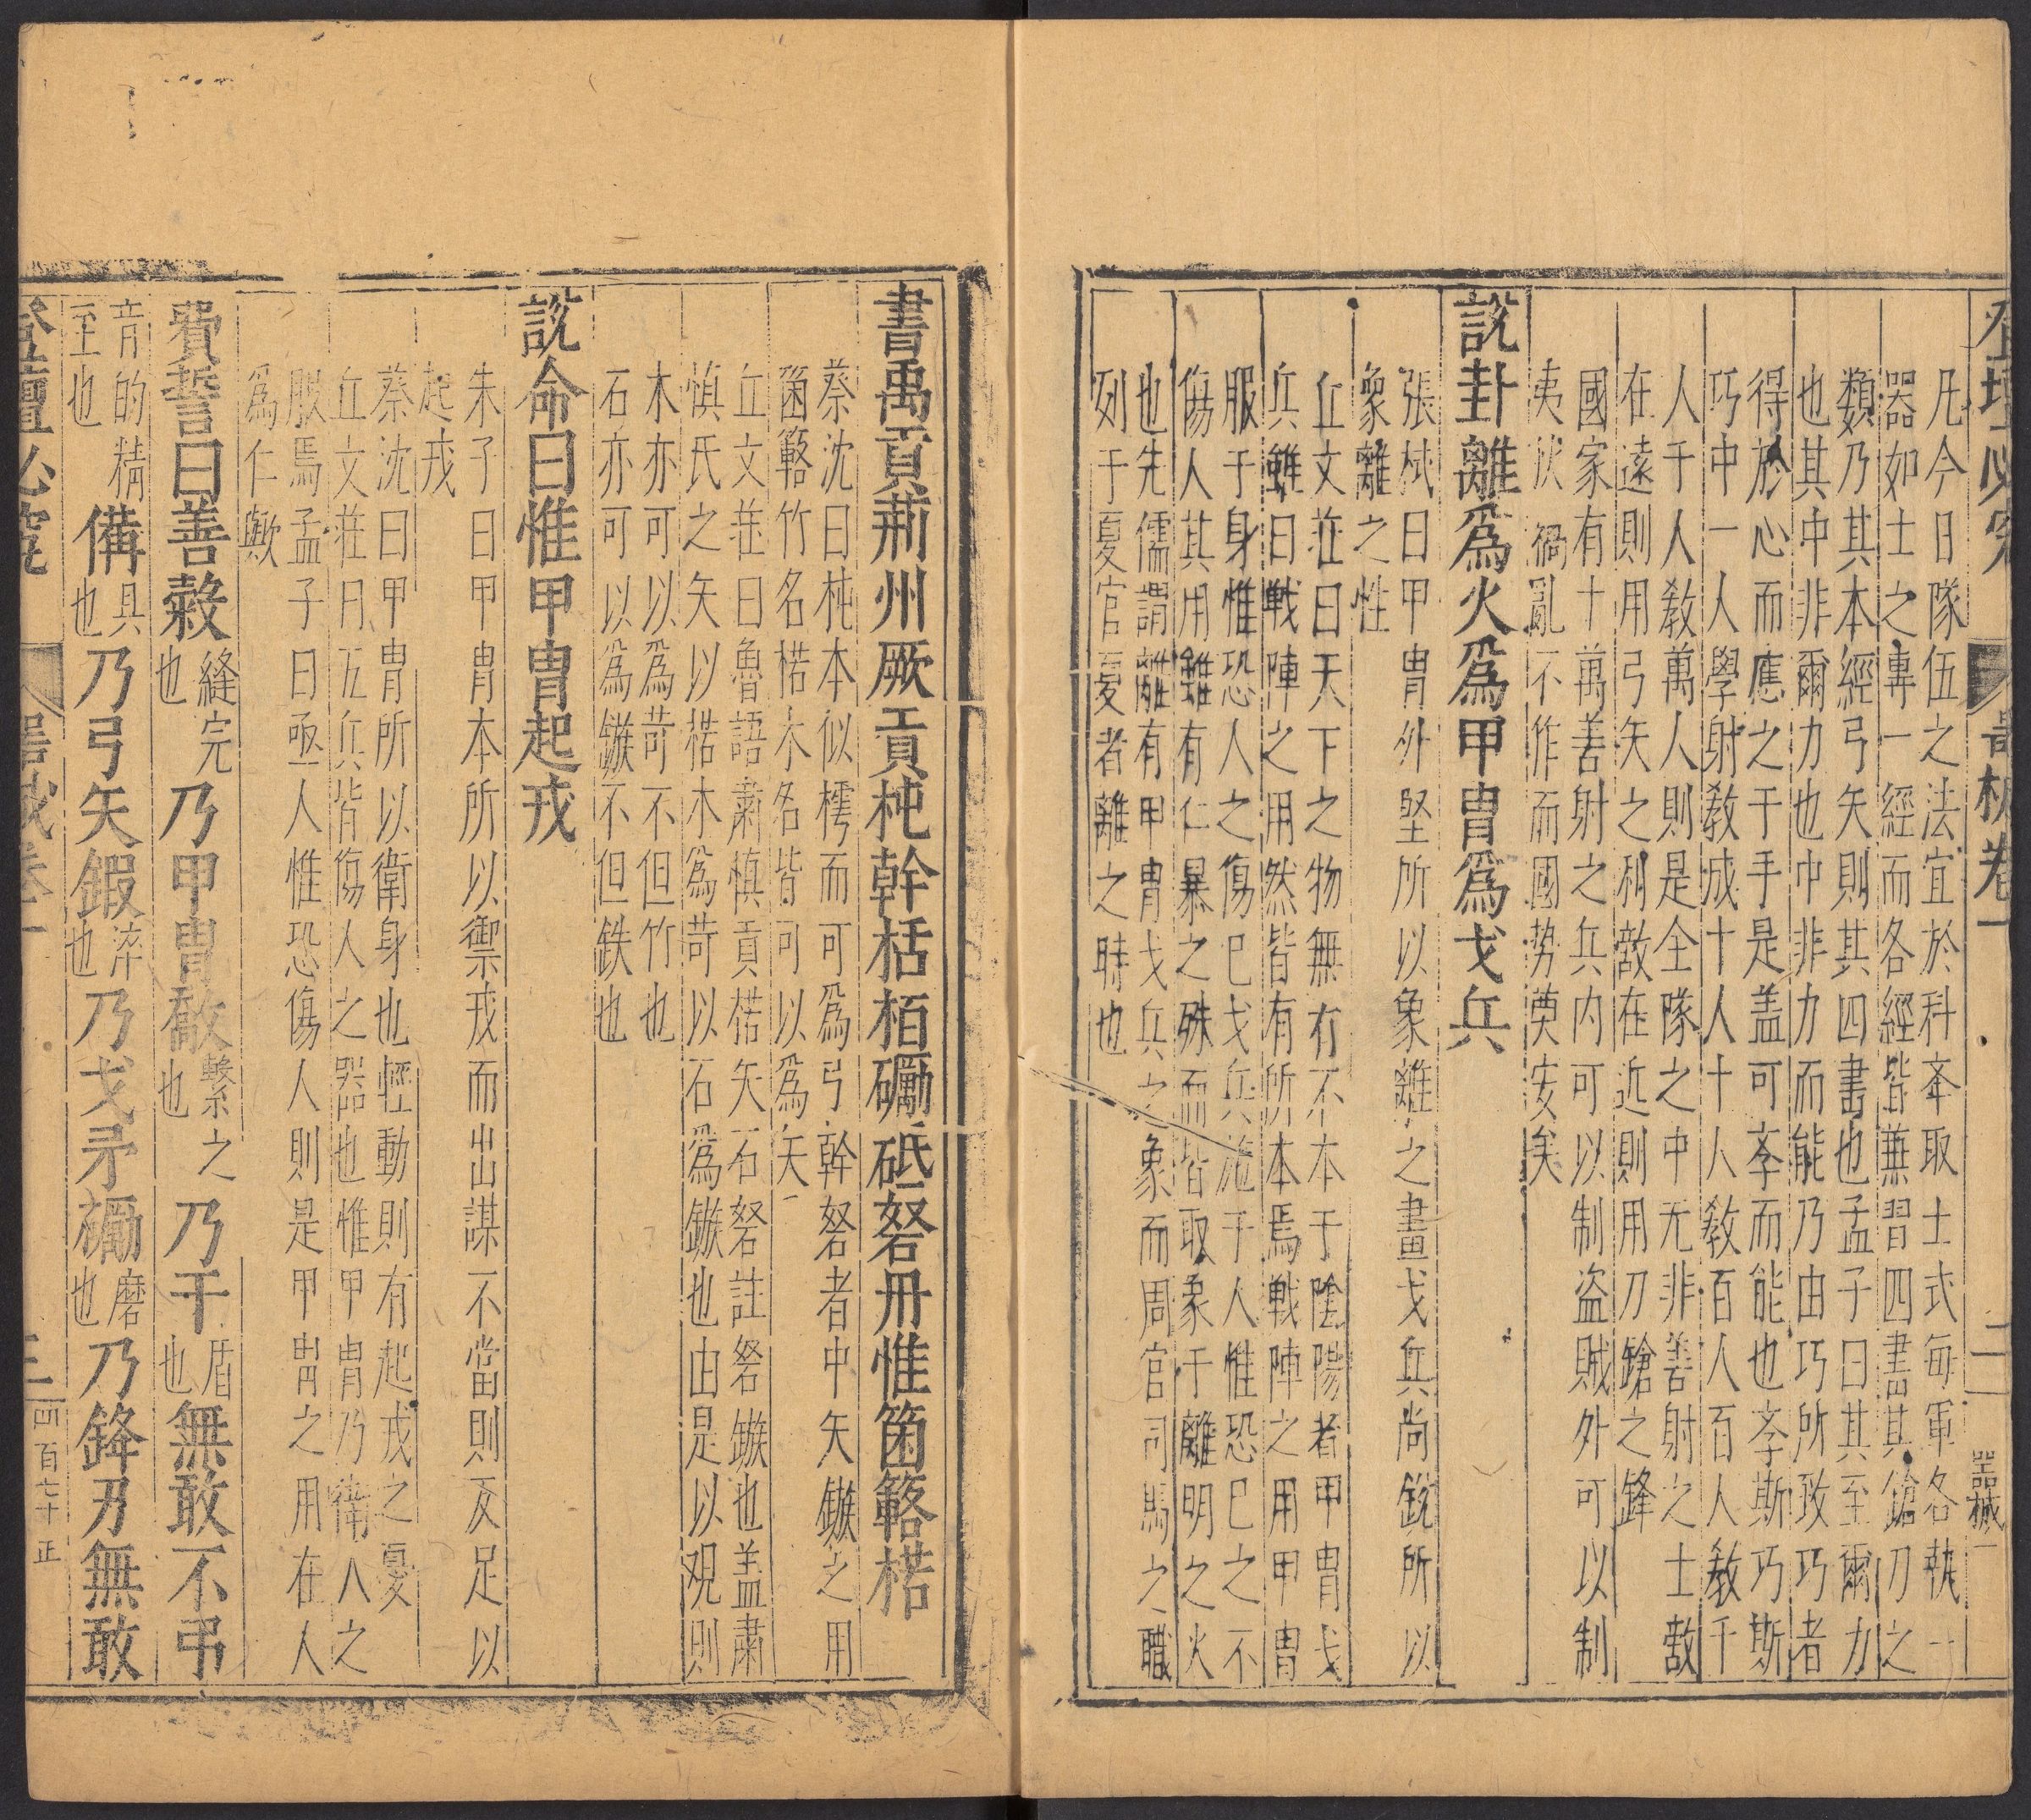 登壇必究
器械卷一
二
器械一
凡今日隊伍之法宜於科夲取士式每軍各執一
器如士之專一經而各經皆兼習四書其鎗刀之
類乃其本經弓矢則其四書也孟子曰其至爾力
也其中非爾力也中非力而能乃由巧所致巧者
得於心而應之于手是盖可夲而能也夲斯巧斯
巧中一人學射教成十人十人教百人百人教千
人千人教萬人則是全隊之中无非善射之士敵
在遠則用弓矢之利敵在近則用刀鎗之鋒
國家有十萬善射之兵内可以制盗賊外可以制
夷狄禍亂不作而國势奠安矣
說卦離爲火爲甲胄爲戈兵
張栻曰甲胄外堅所以象離之畫戈兵尚銳所以
象離之性
丘文莊曰天下之物無有不本于陰陽者甲胄戈
兵雖曰戰陣之用然皆有所本焉戦陣之用甲胄
服于身惟恐人之傷已戈兵施于人惟恐已之不
傷人其用雖有仁暴之殊而皆取象于離明之火
也先儒謂離有甲胄戈兵之象而周官司馬之職
列于夏官夏者離之時也
書禹貢荊州厥貢杶幹栝栢礪砥砮丹惟箘簵楛
蔡沈曰杶本似樗而可爲弓幹砮者中矢鏃之用
箘簵竹名楛木名皆可以爲矢
丘文莊曰魯語肅慎貢楛矢石砮註砮鏃也盖肅
慎氏之矢以楛木爲苛以石爲鏃也由是以观則
木亦可以爲苛不但竹也
石亦可以爲鏃不但鉄也
說命曰惟甲胄起戎
朱子曰甲胄本所以禦戎而出謀不當則反足以
起戎
蔡沈曰甲胄所以衛身也輕動則有起戎之憂
丘文莊曰五兵皆傷人之器也惟甲胄乃衛人之
服焉孟子曰函人惟恐傷人則是甲胄之用在人
爲仁歟
費誓曰善敹縫完也乃甲胄敿繫之也乃干盾也無敢不弔
音的精至也備具也乃弓矢鍜淬也乃戈矛礪磨也乃鋒刃無敢
登壇必究
器械卷一
三
四百七十正